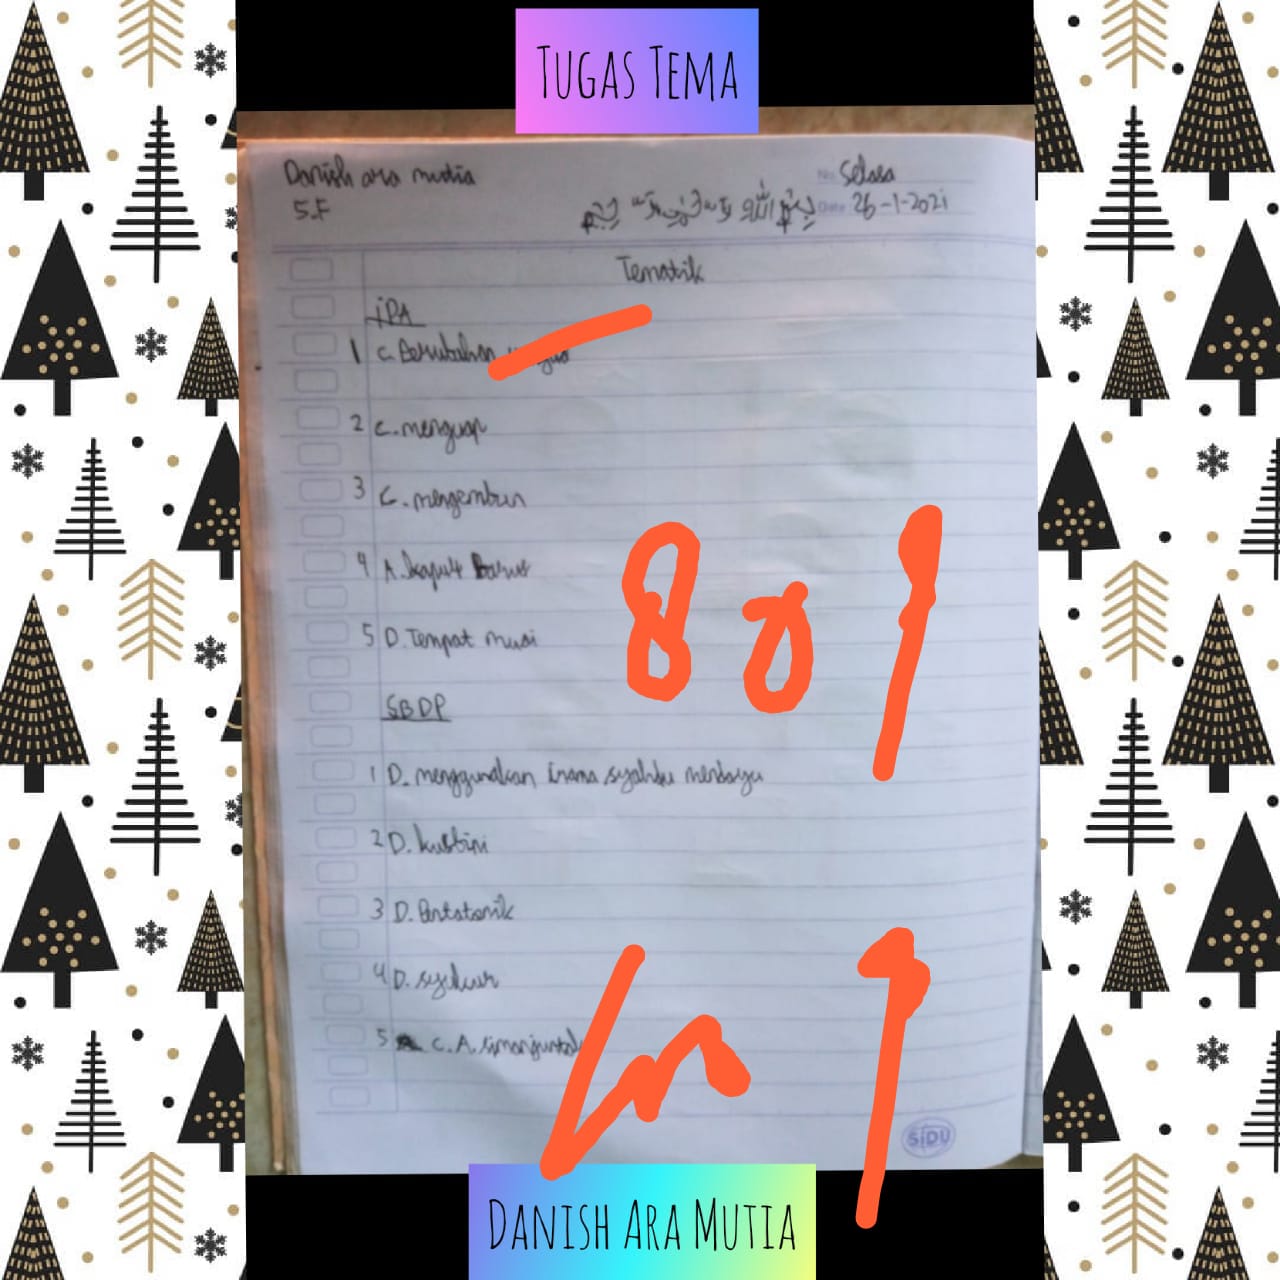 TUGAS TEMA
Danish ara mutia
No. Selasa
5.F
Date 26-1-2021
Tematik
IPA
1 C. Perubahan
2 C. menguap
3 C. mengembun
4 A. kapur Barus
5 D. Tempat
SBDP
1 D. menggunakan irama syahdu mendayu
2 D. kustini
3 D. Pentatonik
4 D. syukur
5 C. A. simanjuntak
80
SIDU
DANISH ARA MUTIA